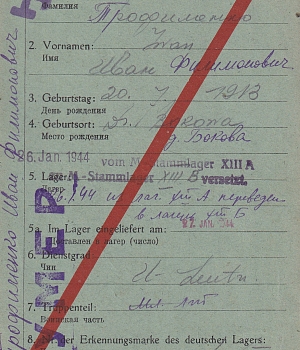 Фамилия
Трофименко
2. Vornamen: Iwan
Имя
Иван Филимонович
3. Geburtstag: 20. 7. 1913
День рождения
4. Geburtsort: Bokowa
Место рождения д. Бокова
26. Jan. 1944 vom M-Stammlager XIII A
5. Lager: M-Stammlager XIII B versetzt.
Лагерь
26.1.44 из лаг. XIII А переведен
в лагерь XIII Б
5a. Im Lager eingeliefert am: 27. JAN. 1944
Доставлен в лагерь (число)
6. Dienstgrad: U-Leutn.
Чин
7. Truppenteil: мл. лт
Воинская часть
8. Nr. der Erkennungsmarke des deutschen Lagers:
Трофименко Иван Филимонович
УМЕР